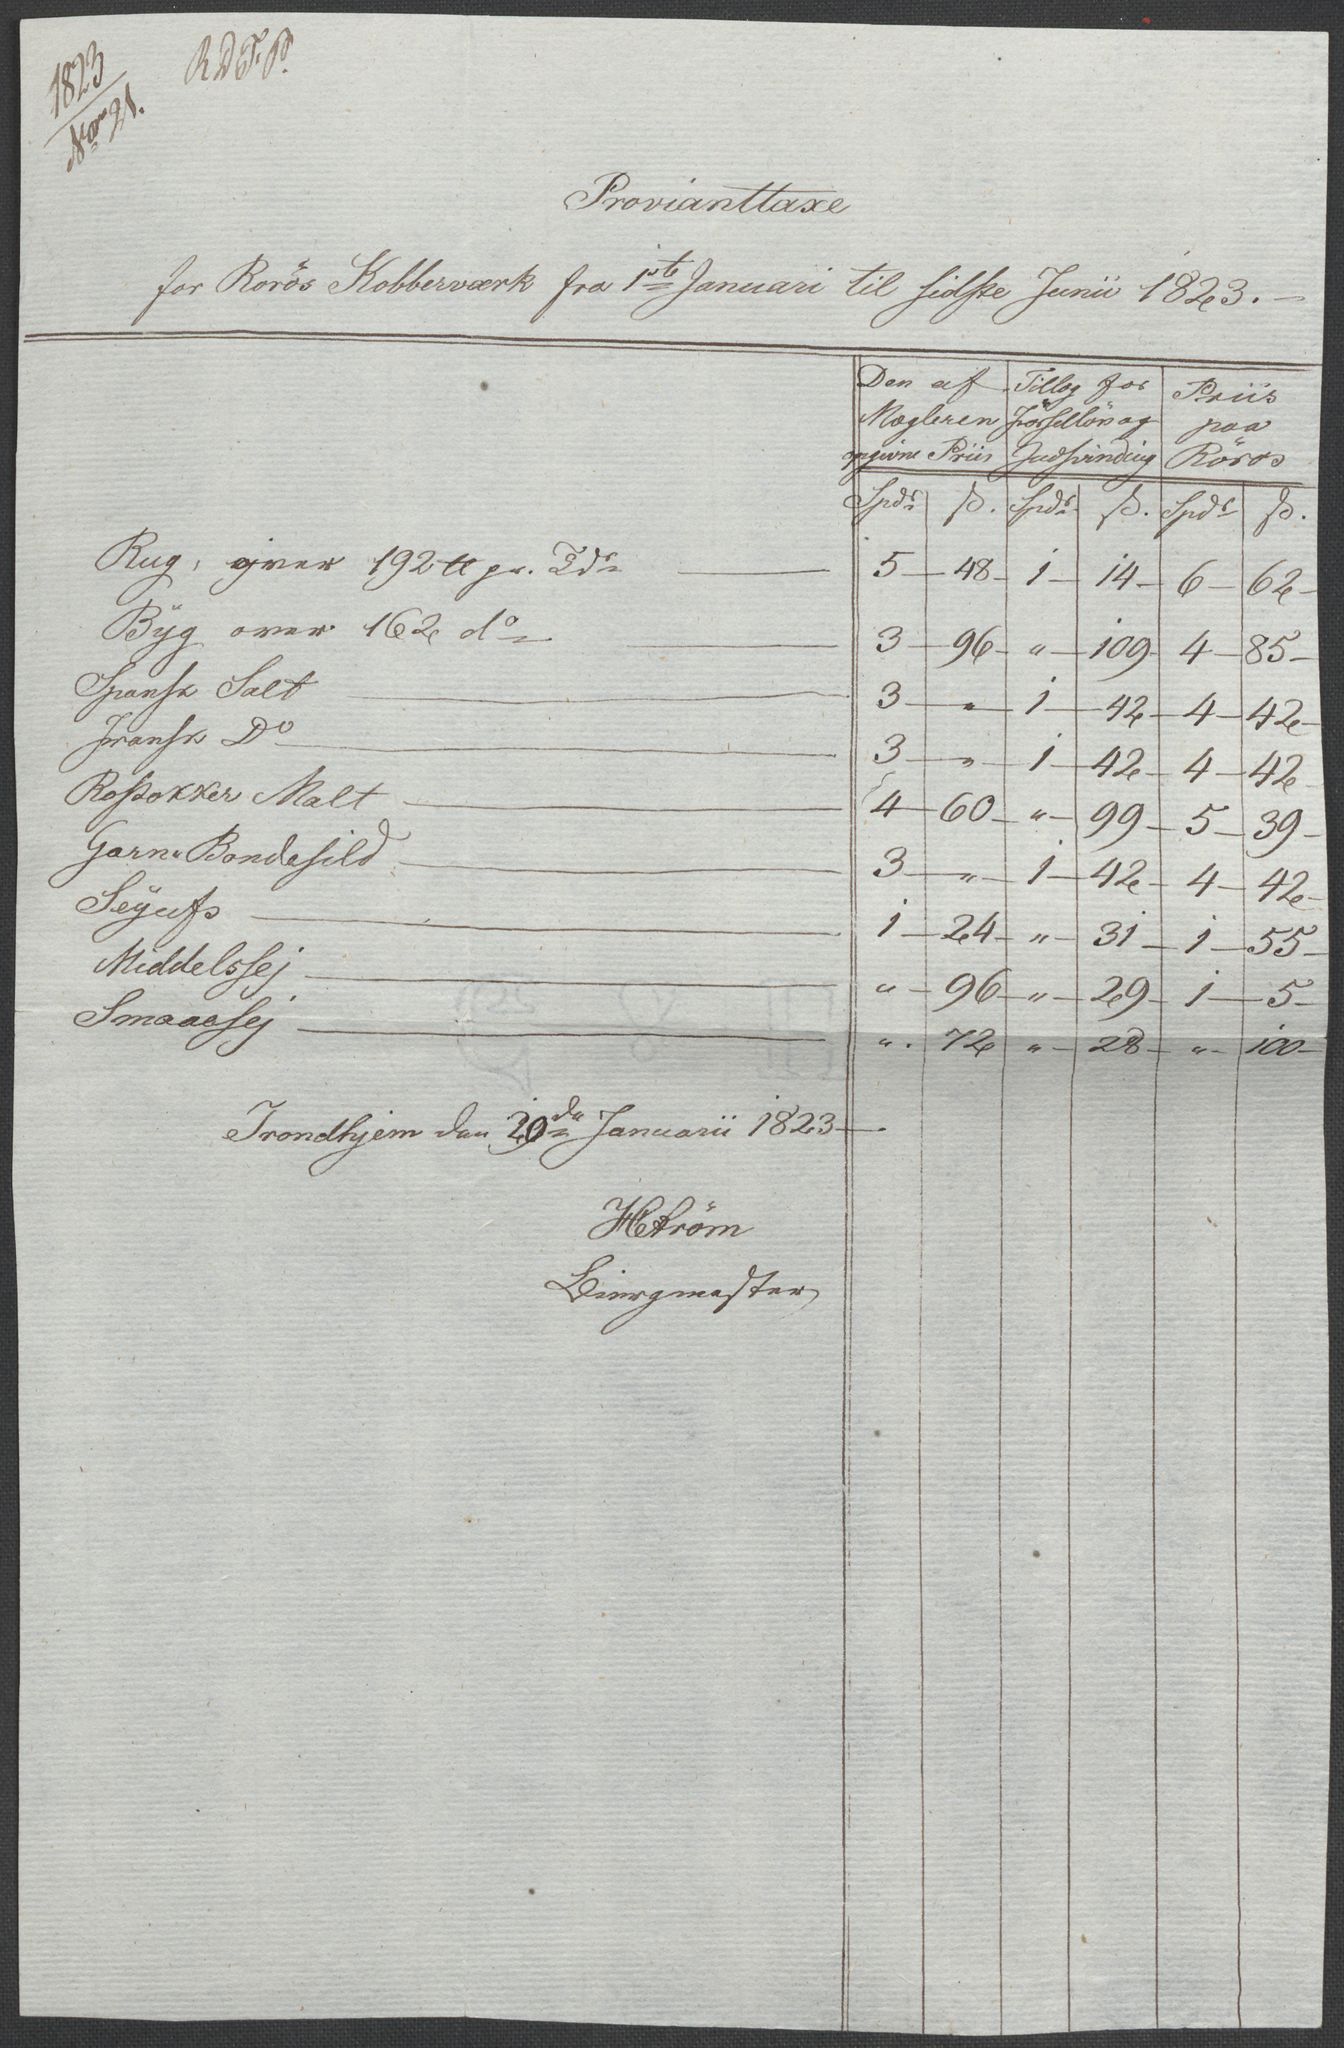 1823
No 91.
R D T. P.
Provianttaxe
for Rörös Kobberværk fra 1ste Januari til sidste Junii 1823. —
Den af Mægleren opgivne Priis | Tillæg for Förselløn og Indsvinding | Priis paa Röros
Spdr | ß. | Spdr | ß. | Spdr | ß.
Rug, over 192 ℔ pr. Tde — 5 — 48 — 1 — 14 — 6 — 62 —
Byg over 162 do — 3 — 96 — " — 109 — 4 — 85 —
Spansk Salt — 3 — " — 1 — 42 — 4 — 42 —
Fransk Do — 3 — " — 1 — 42 — 4 — 42 —
Rostokker Malt — 4 — 60 — " — 99 — 5 — 39 —
Garn " Bondesild — 3 — " — 1 — 42 — 4 — 42 —
Sejufs — 1 — 24 — " — 31 — 1 — 55 —
Middelssej — " — 96 — " — 29 — 1 — 5 —
Smaaesej — " . 72 " — 28 — " — 100 —
Trondhjem den Januarii 1823 —
HStröm
Biergmester